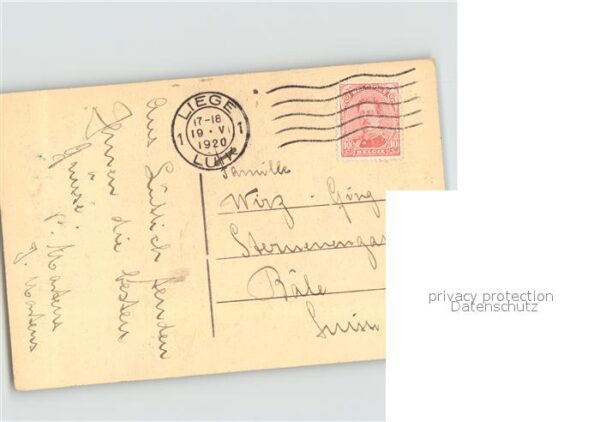 LIEGE
17-18
1 19·VI 1
1920
LUIK
BELGIE
10 10
Aus Lüttich senden
Ihnen die besten
Grüsse.
P. Martens
J. Martens
Famille
Wirz - Göng
Sternenenga
Bâle
Suisse
privacy protection
Datenschutz